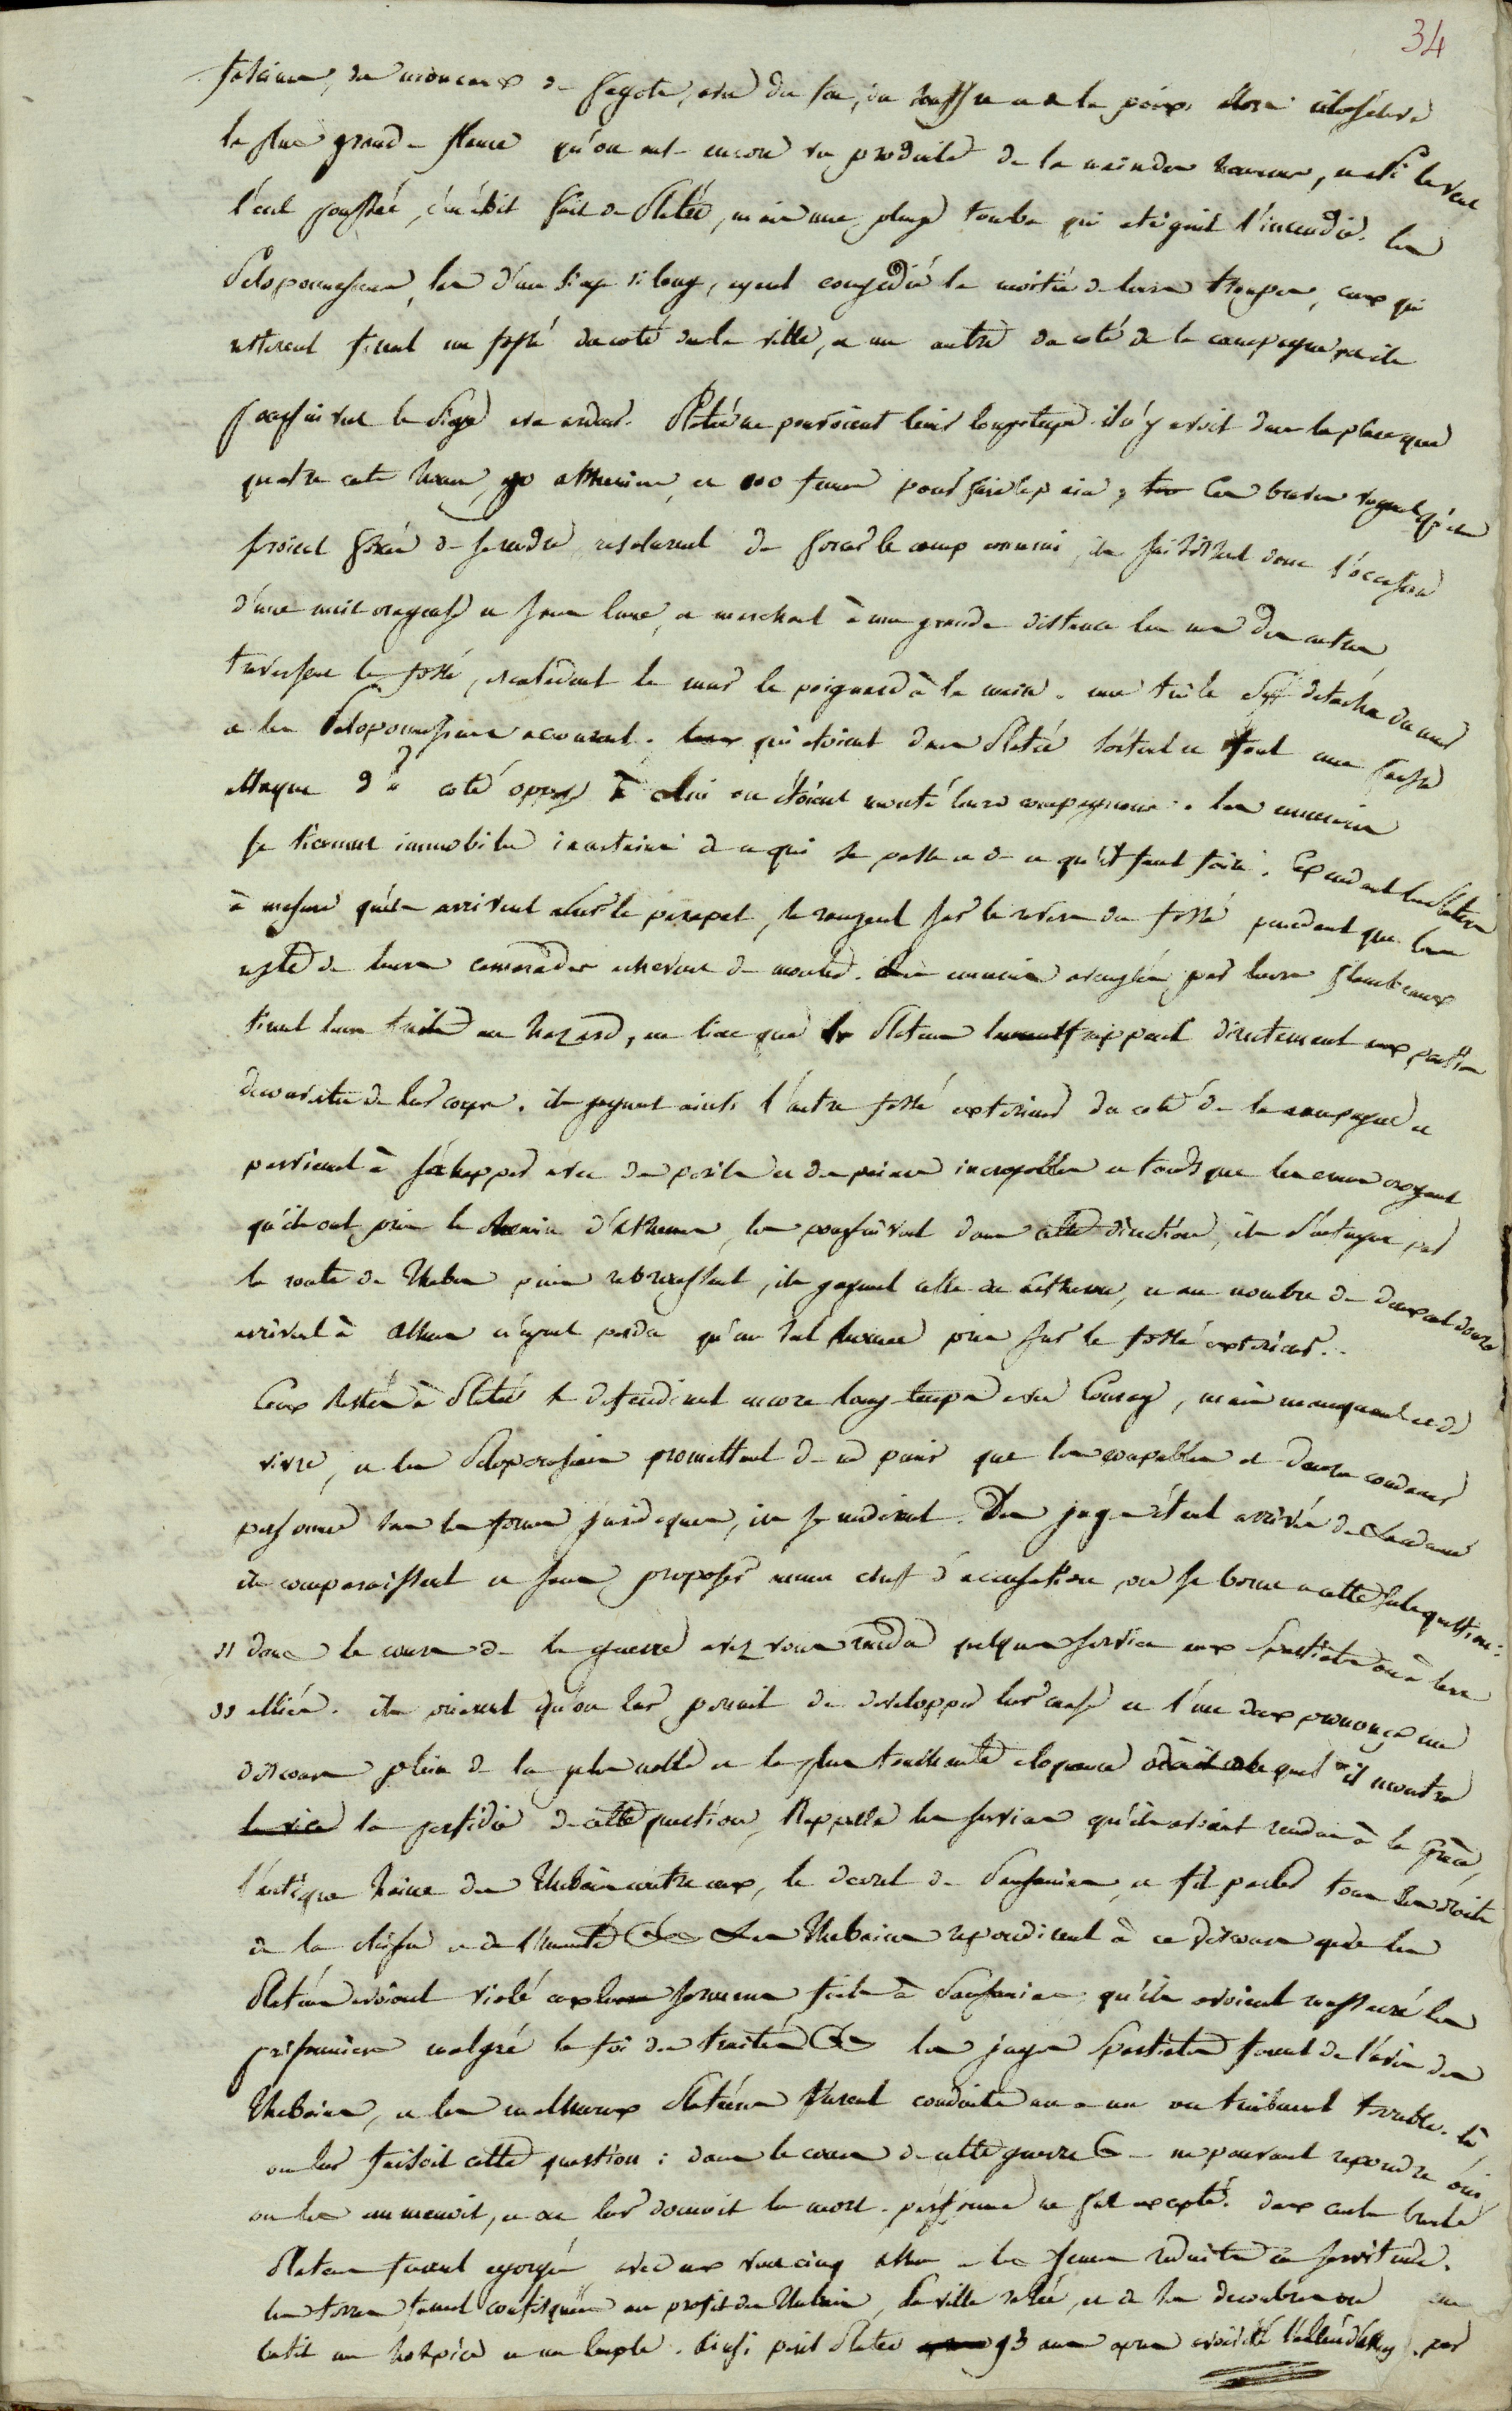 34
fascines, des monceaux de fagots, avec du feu, du souffre et de la poix. alors s'éleva
la plus grande flame qu'on eut encore vu produite de la main des hommes, et si le vent
l'eut soufflée, c'en étoit fait de Platée, mais une pluye tomba qui eteignit l'incendie. les
Peloponnesiens, las d'un siege si long, ayant congedié la moitié de leurs troupes, ceux qui
resterent firent un fossé du coté de la ville, et un autre du coté de la campagne et ils
poursuivent le siege avec ardeur. Platée ne pouvoient tenir longtemps. il n'y avoit dans la place que
quatre cents hommes, 80 atheniens, et 100 femmes pour faire le pain, ces braves voyant qu'ils
seroient forcés de se rendre resolurent de forcer le camp ennemi, ils saisissent donc l'occasion
d'une nuit orageuse et sans lune, et marchant à une grande distance les uns des autres,
traversent le fossé, escaladent le mur le poignard à la main. une tuile se detacha du mur
et les Peloponnesiens accourent. ceux qui etoient dans Platée sortent et font une fausse
attaque du coté opposé à celui ou étoient monté leurs compagnons. les ennemis
se tiennent immobiles incertains de ce qui se passe et de ce qu'il faut faire. Cependant les Platéens
à mesure qu'ils arrivent sur le parapet, se rangent sur le revers du fossé pendant que le
reste de leurs camarades achevent de monter. les ennemis aveuglés par leurs flambeaux
tirent leurs traits au hazard, au lieu que les Platéens frappent directement aux parties
decouvertes de leur corps. ils gagnent ainsi l'autre fossé exterieur du coté de la campagne et
parvienent à s'échapper avec des perils et des peines incroyables et tandis que les ennemis croyant
qu'ils ont pris le chemin d'athenes, les poursuivent dans cette direction, ils s'echapent par
la route de Thebes puis rebroussant, ils gagnent celle d'athenes, et au nombre de deux cent douze
arrivent à athenes n'ayant perdu qu'un seul homme pris sur le fossé exterieur.
Ceux restés à Platée se defendirent encore long-temps avec courage, mais manquant de
vivre, et les Peloponesiens promettant de ne punir que les coupables et de ne condamner
personne sans les formes juridiques, ils se rendirent. Des juges étant arrivés de Lacedemone
ils comparoissent et sans proposer aucun chef d'accusation, on se borne a cette seule question:
" dans le cours de la guerre avez vous rendu quelques services aux Spartiates ou à leurs
" alliés. ils prierent qu'on leur permit de developper leur cause et l'un deux prononça un
discours plein de la plus noble et la plus touchante eloquence dans lequel il montra
la perfidie de cette question, Rappella les services qu'ils avoient rendus à la Grece,
l'antique haine des Thebains contre eux, le decret de Pausanias, et fit parler tous les droits
de la et de l'humanité &c Les Thebains repondirent à ce discours que les
Platéens avoient violé leurs sermens faits à Pausanias qu'ils avoient massacré les
prisonniers malgré la foi des traités &c les juges Spartiates furent de l'avis des
Thebains, et les malheureux Platéens furent conduits un a un au tribunal terrible. là
on leur faisoit cette question: dans le cours de cette guerre &c ne pouvant repondre oui
on les emmenoit, et on leur donnoit la mort. personne ne fut excepté. deux cents braves
Platéens furent egorgés avec eux vint cinq athen et les femmes reduites en servitude.
les terres furent confisquées au profit des Thebains, la ville rasée, et de ses decombres on en
batit un hospice et un temple. Ainsi perit Platée 93 ans après avoir été l'alliée d'Ath par